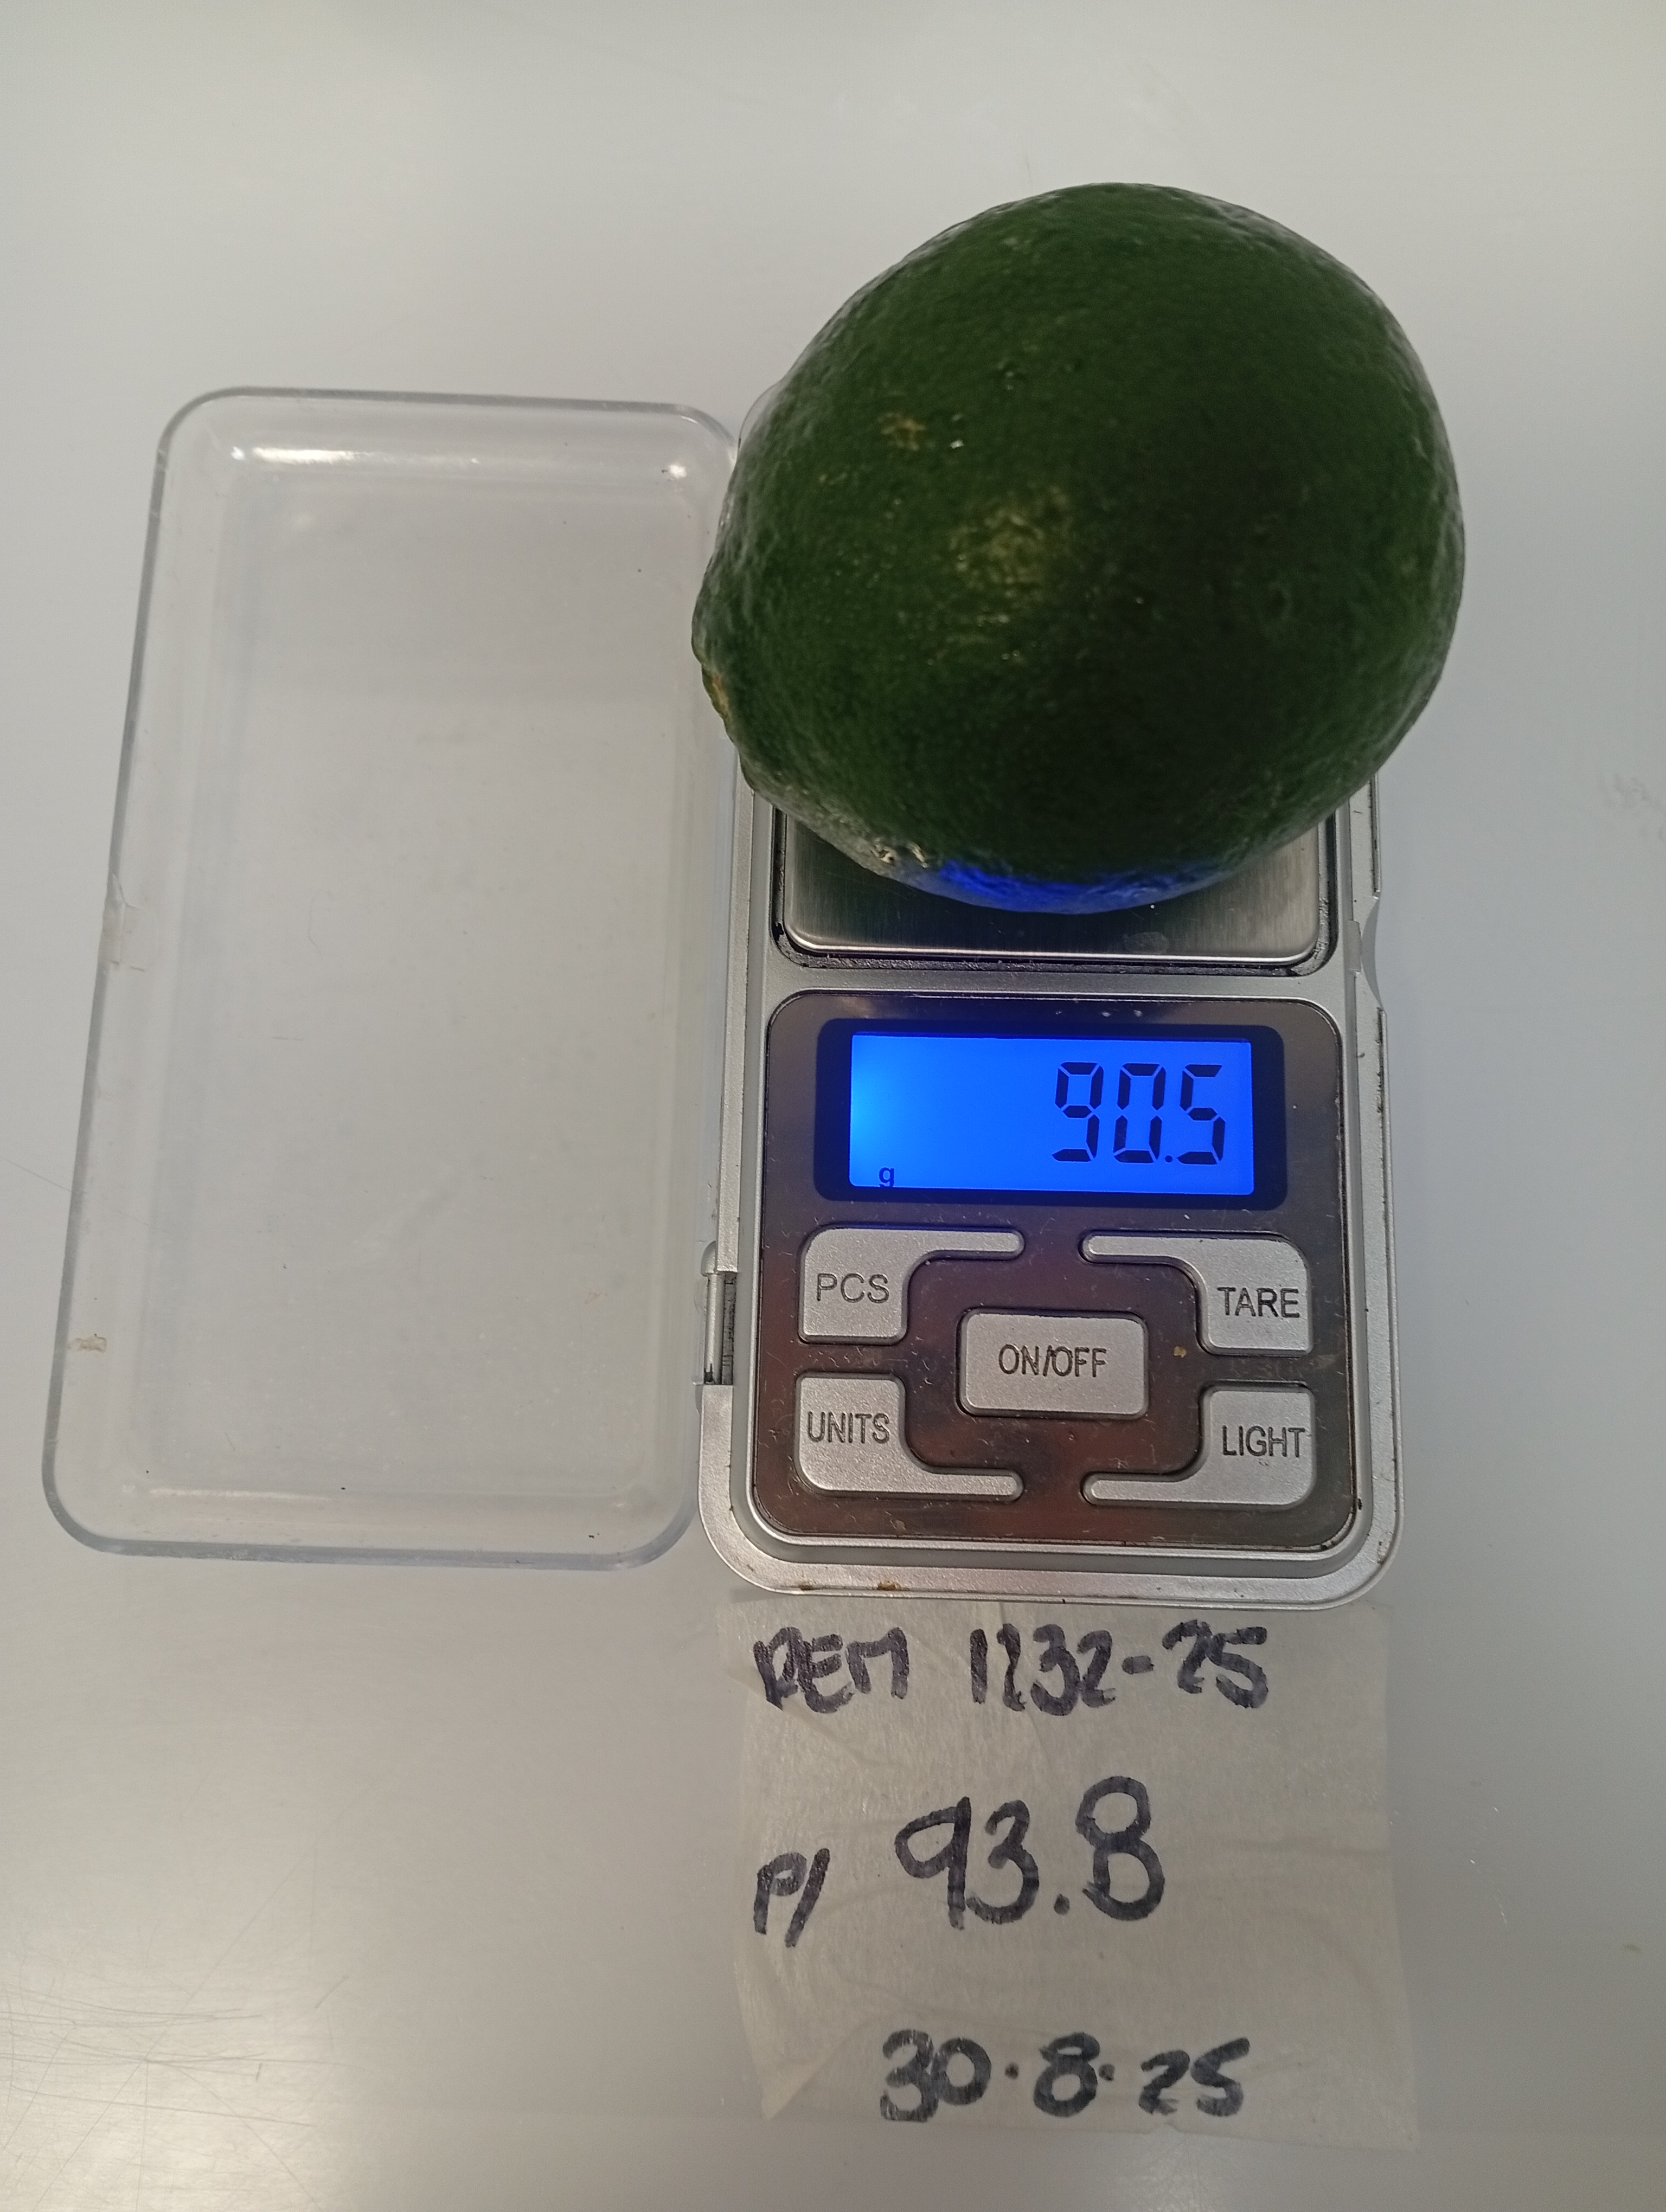 90.5
g
PCS
TARE
ON/OFF
UNITS
LIGHT
REM 1232-25
P/ 93.8
30.8.25